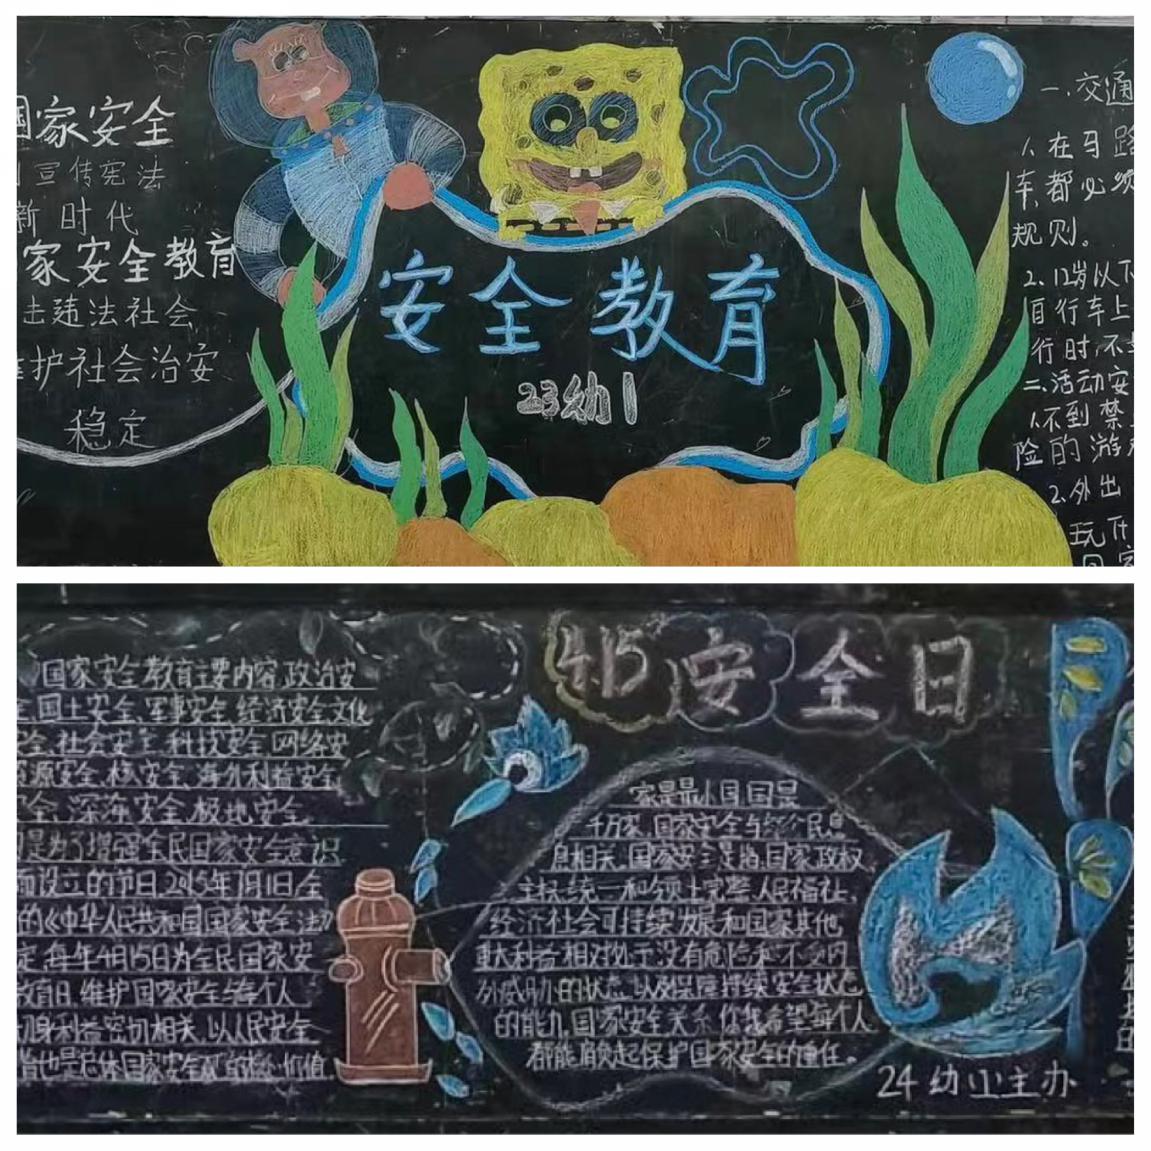 国家安全
宣传宪法
新时代
家安全教育
击违法社会
护社会治安
稳定
安全教育
23幼1
一.交通
1.在马路
车都必须
规则。
2.12岁以下
自行车上
行时,不
二.活动安
1.不到禁
险的游
2.外出
玩
国家安全教育主要内容,政治安
国土安全、军事安全、经济安全文化
全、社会安全、科技安全、网络安
资源安全、核安全、海外利益安全
安全、深海安全、极地安全。
是为了增强全民国家安全意识
而设立的节日。2015年7月1日,全
的《中华人民共和国国家安全法》
定,每年4月15日为全民国家安
教育日。维护国家安全与每个人
切身利益密切相关,以人民安全
4.15安全日
家是最小国,国是
千万家,国家安全与每个人民息
息相关。国家安全是指,国家政权、
主权统一和领土完整、人民福祉、
经济社会可持续发展和国家其他
重大利益相对处于没有危险和不受内
外威胁的状态,以及保障持续安全状态
的能力。国家安全关系你我,希望每个人
都能肩负起保护国家安全的重任。
24幼业主办